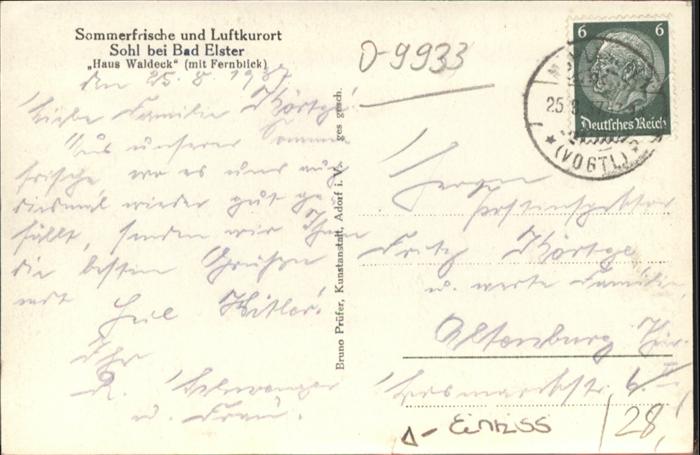 Sommerfrische und Luftkurort
Sohl bei Bad Elster
„Haus Waldeck" (mit Fernblick)
den 25.8.1937
Liebe Familie Körtge!
Aus unserer Sommer-
frische, wo es uns auch
diesmal wieder gut ge-
fällt, senden wir Ihnen
die besten Grüße
mit
Heil Hitler!
Ihr
u. Frau.
Bruno Prüfer, Kunstanstalt, Adorf i. V. ges gesch.
D-9933
6 6
Deutsches Reich
25.8.
(VOGTL)
Herrn
Postinspektor
Fritz Körtge
u. werte Familie
Altenburg Thür.
Δ- EinRiss
28,